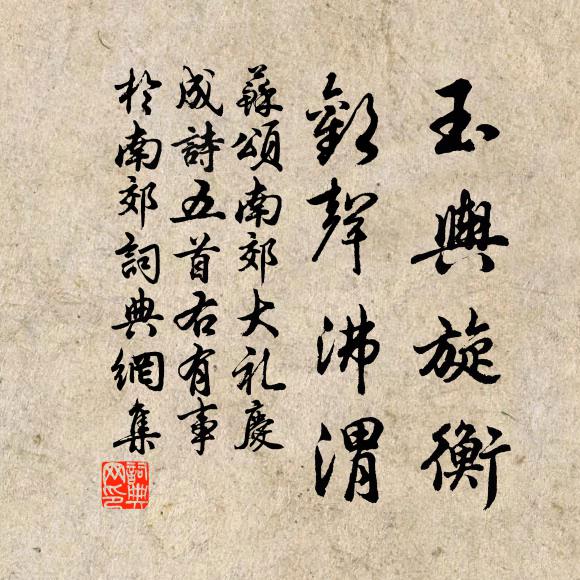 玉輿旋衡
歡聲沸渭
蘇頌南郊大礼慶
成詩五首右有事
於南郊詞典網集
詞典
网印